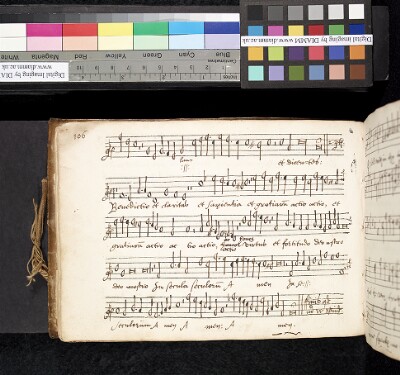 Blue Cyan Green Yellow Red Magenta White
Digital Imaging by DIAMM
www.diamm.ac.uk
Centimetres
Inches
Digital Imaging by DIAMM www.diamm.ac.uk
106
et dicentes:
Benedictio et claritas et sapientia et gratiarum actio actio, et
gratiarum actio ac tio actio, honor virtus et fortitudo deo nostro
deo nostro In secula seculorum A men In se:
seculorum A men A men: A men: